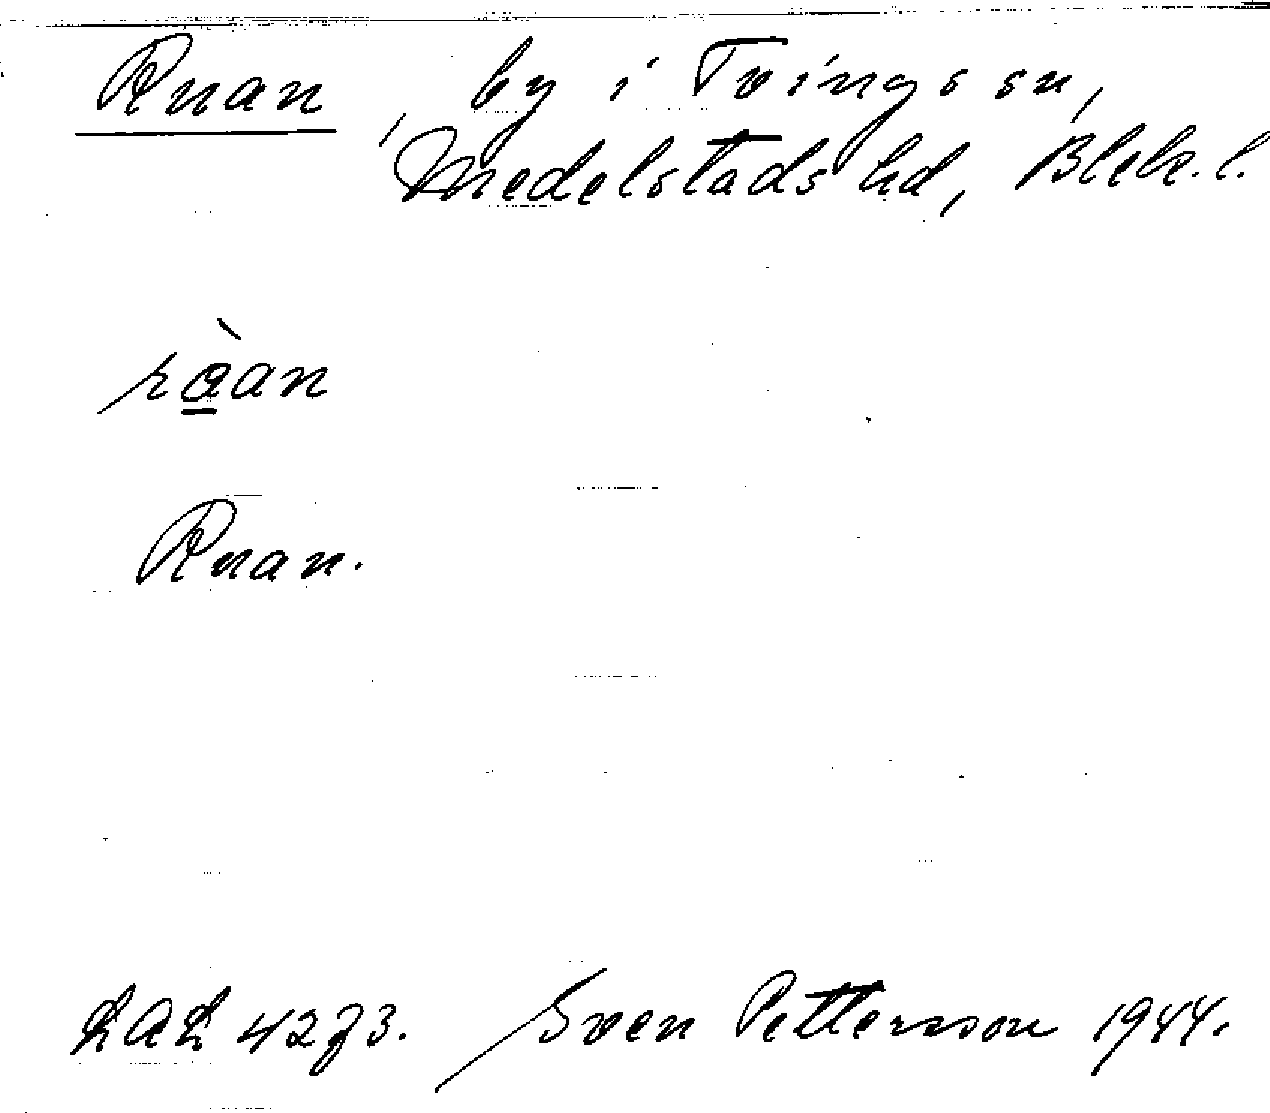 Ruan, by i Tvings sn,
Medelstads hd, Blek. l.
rà̲an
Ruan.
LAL 4273. Sven Pettersson 1944.